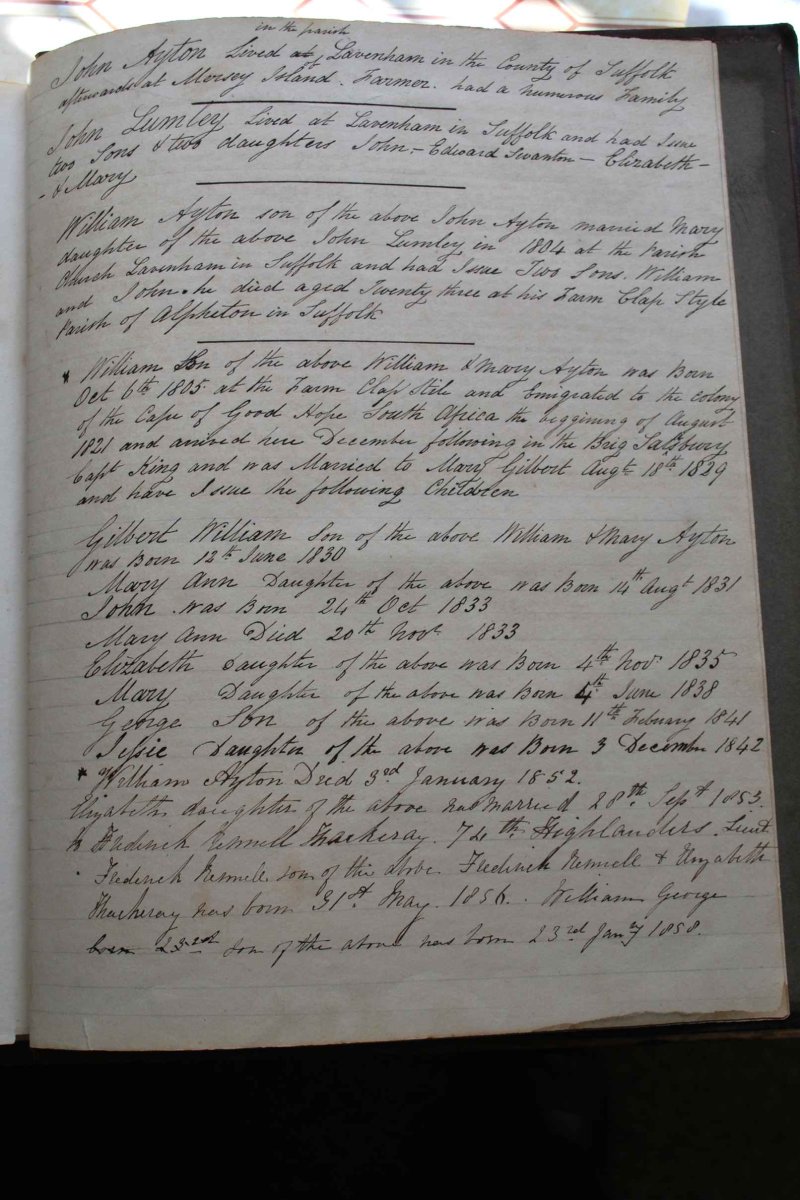 in the parish
John Ayton Lived at Lavenham in the County of Suffolk
afterwards at Mersey Island. Farmer. had a numerous Family
John Lumley Lived at Lavenham in Suffolk and had Issue
two Sons & two daughters John, – Edward Swanton – Elizabeth –
– & Mary
William Ayton son of the above John Ayton married Mary
daughter of the above John Lumley in 1804 at the Parish
Church Lavenham in Suffolk and had Issue Two Sons. William
and John. he died aged Twenty three at his Farm Clap Style
Parish of Alpheton in Suffolk
William Son of the above William & Mary Ayton was Born
Oct 6th 1805 at the Farm Clap Stile and Emigrated to the colony
of the Cape of Good Hope South Africa the beggining of August
1821 and arrived here December following in the Brig Salsbury
Capt King and was Married to Mary Gilbert Augt 18th 1829
and have Issue the following Children
Gilbert William Son of the above William & Mary Ayton
was Born 12th June 1830
Mary Ann Daughter of the above was Born 14th Augt 1831
John was Born 24th Oct 1833
Mary Ann Died 20th Novr 1833
Elizabeth daughter of the above was Born 4th Novr 1835
Mary Daughter of the above was Born 4th June 1838
George Son of the above was Born 11th Febuary 1841
Jessie Daughter of the above was Born 3 December 1842
* William Ayton Died 3rd January 1852.
Elizabeth daughter of the above was married 28th Sept 1853.
to Frederick Rennell Thackeray. 74th Highlanders. Lieut
Frederick Rennell son of the above Frederick Rennell & Elizabeth
Thackeray was born 31st May. 1856. William George
born 23rd son of the above was born 23rd Jany 1858.